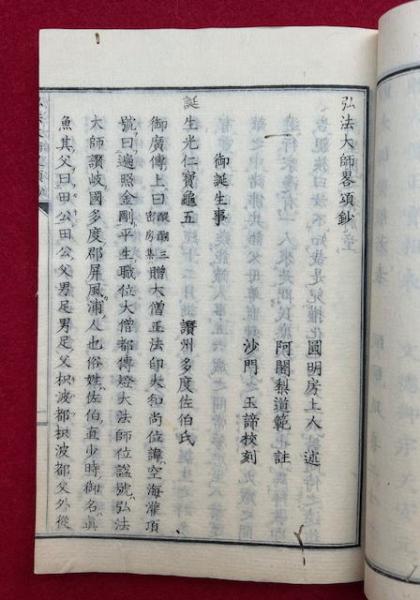 弘法大師畧頌鈔
圓明房上人 述
阿闍梨道範 註
沙門 玉諦校刻
一
御誕生事
誕生光仁寶龜五 讃州多度佐伯氏
御廣傳上曰醍醐三密房集贈大僧正法印大和尚位諱空海灌頂
號曰遍照金剛平生職位大僧都傳燈大法師位諡號弘法
大師讃岐國多度郡屏風浦人也俗姓佐伯直少時御名眞
魚其父曰田公田公父男足男足父枳波都枳波都父外從